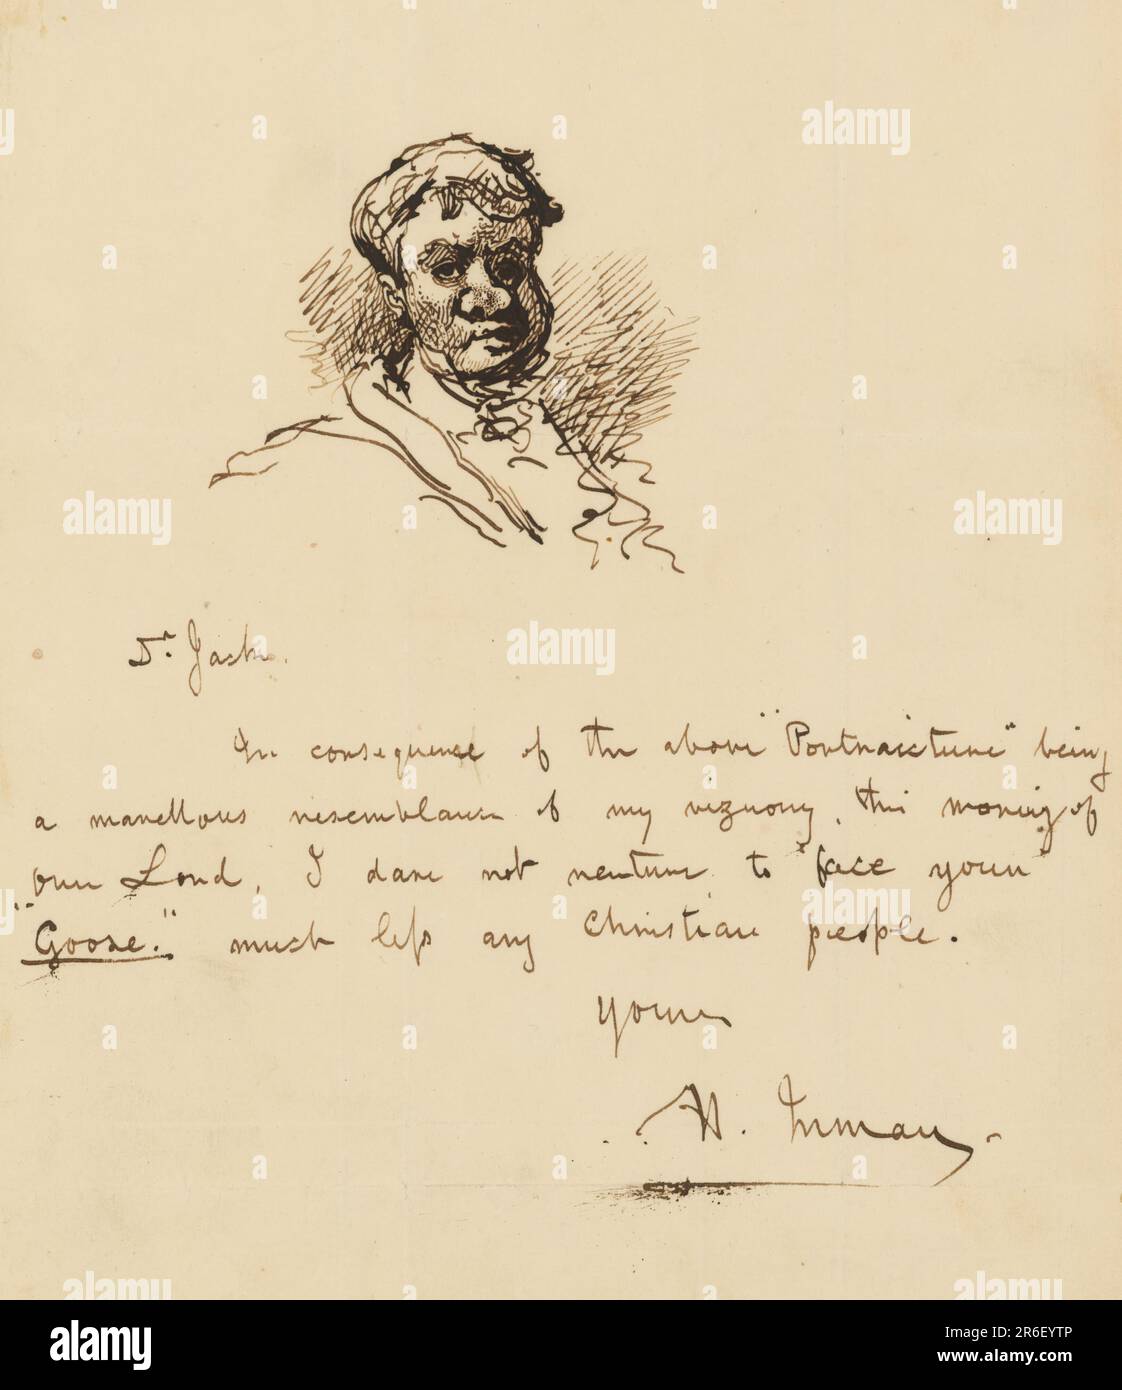 Dr. Jack.
In consequence of the above "Portraicture" being
a marvellous resemblance of my viznomy, this morning of
our Lord, I dare not venture to "face your
"Goose." much less any Christian people.
Yours
H. Inman
alamy
Image ID: 2R6EYTP
www.alamy.com